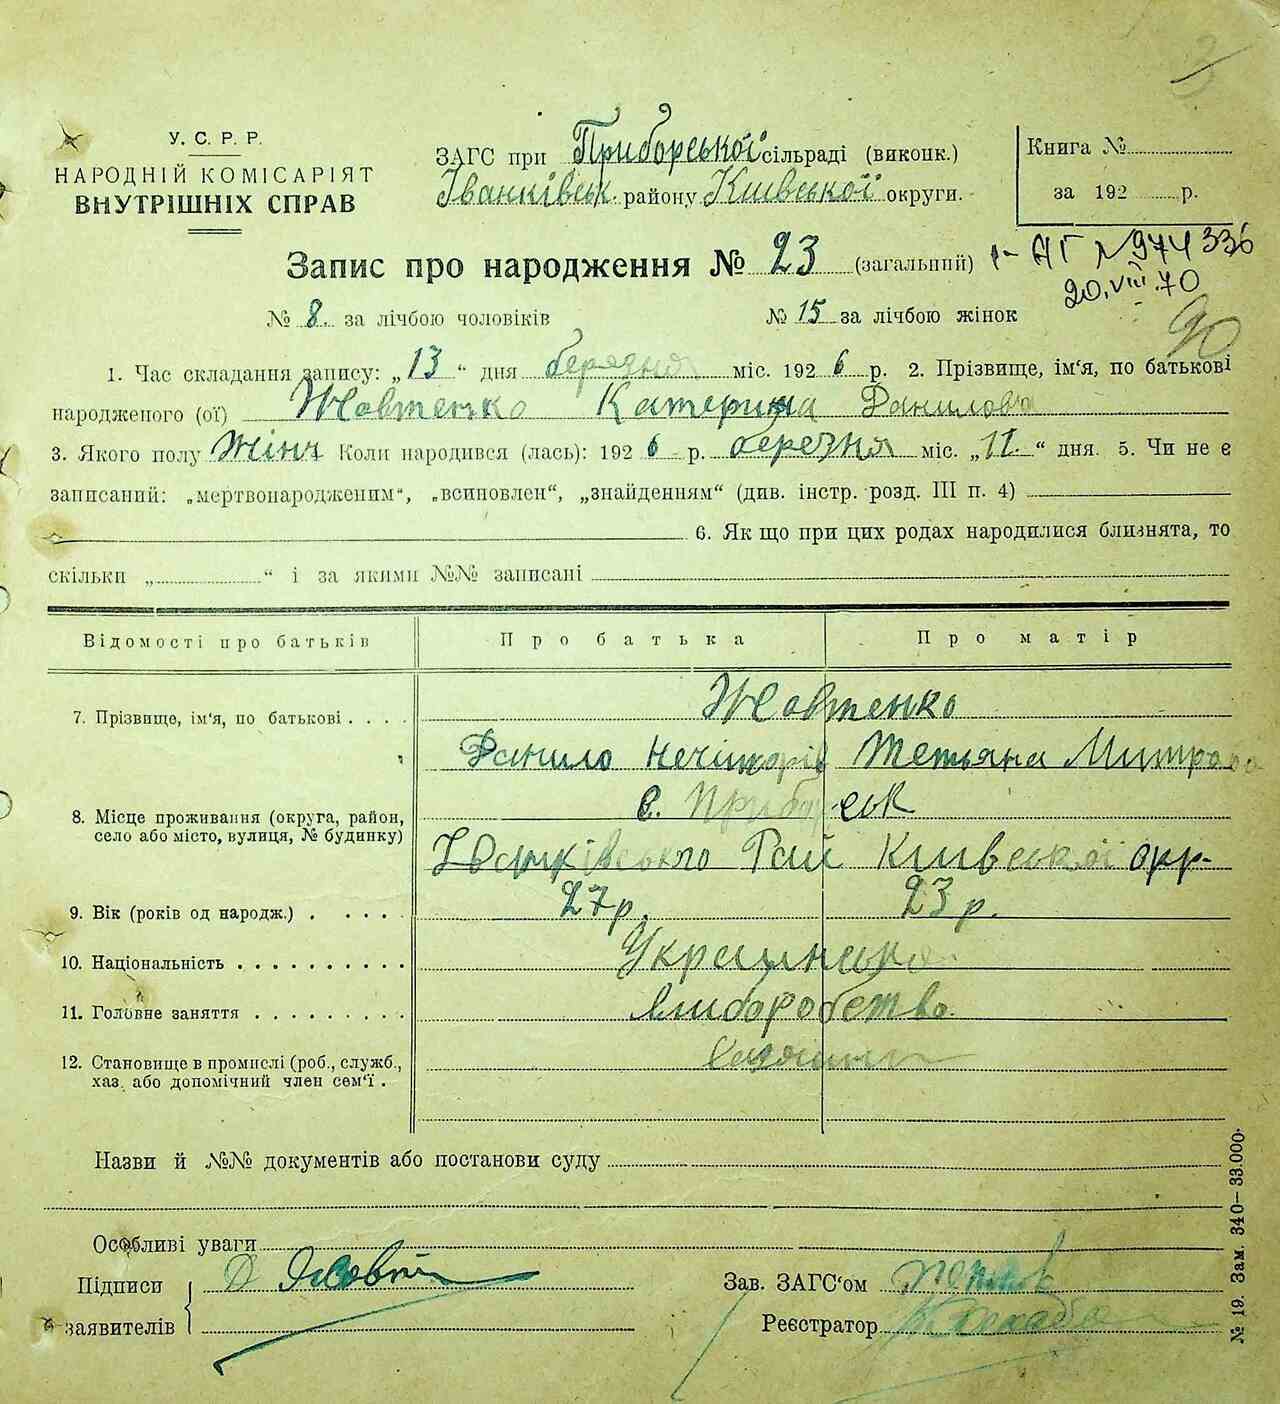 У. С. Р. Р.
НАРОДНІЙ КОМІСАРІЯТ
ВНУТРІШНІХ СПРАВ
ЗАГС при Приборської сільраді (виконк.)
Іванківськ. району Київської округи.
Книга №
за 192 р.
Запис про народження № 23 (загальний)
1-АГ №974336
20.VIII.70
№ 8. за лічбою чоловіків № 15 за лічбою жінок
90
1. Час складання запису: „13“ дня березня міс. 1926 р. 2. Прізвище, ім'я, по батькові
народженого (ої) Жовтенко Катерина Данилова
3. Якого полу Жіноч Коли народився (лась): 1926 р. березня міс. „11.“ дня. 5. Чи не є
записаний: „мертвонародженим“, „всиновлен“, „знайденням“ (див. інстр. розд. III п. 4)
6. Як що при цих родах народилися близнята, то
скільки „ “ і за якими №№ записані
Відомості про батьків Про батька Про матір
7. Прізвище, ім'я, по батькові . . . . Жовтенко
Данило Нечипорів Тетьяна Митрова
8. Місце проживання (округа, район,
село або місто, вулиця, № будинку)
с. Приборськ
Іванківського Рай Київської окр-
9. Вік (років од народж.) . . . . . 27 р. 23 р.
10. Національність . . . . . . . . . . Українська
11. Головне заняття . . . . . . . . . Хліборобство.
12. Становище в промислі (роб., служб.,
хаз. або допомічний член сем'ї .
Назви й №№ документів або постанови суду
Особливі уваги
Підписи
заявителів
Зав. ЗАГС'ом
Реєстратор
№ 19. Зам. 340—33.000.